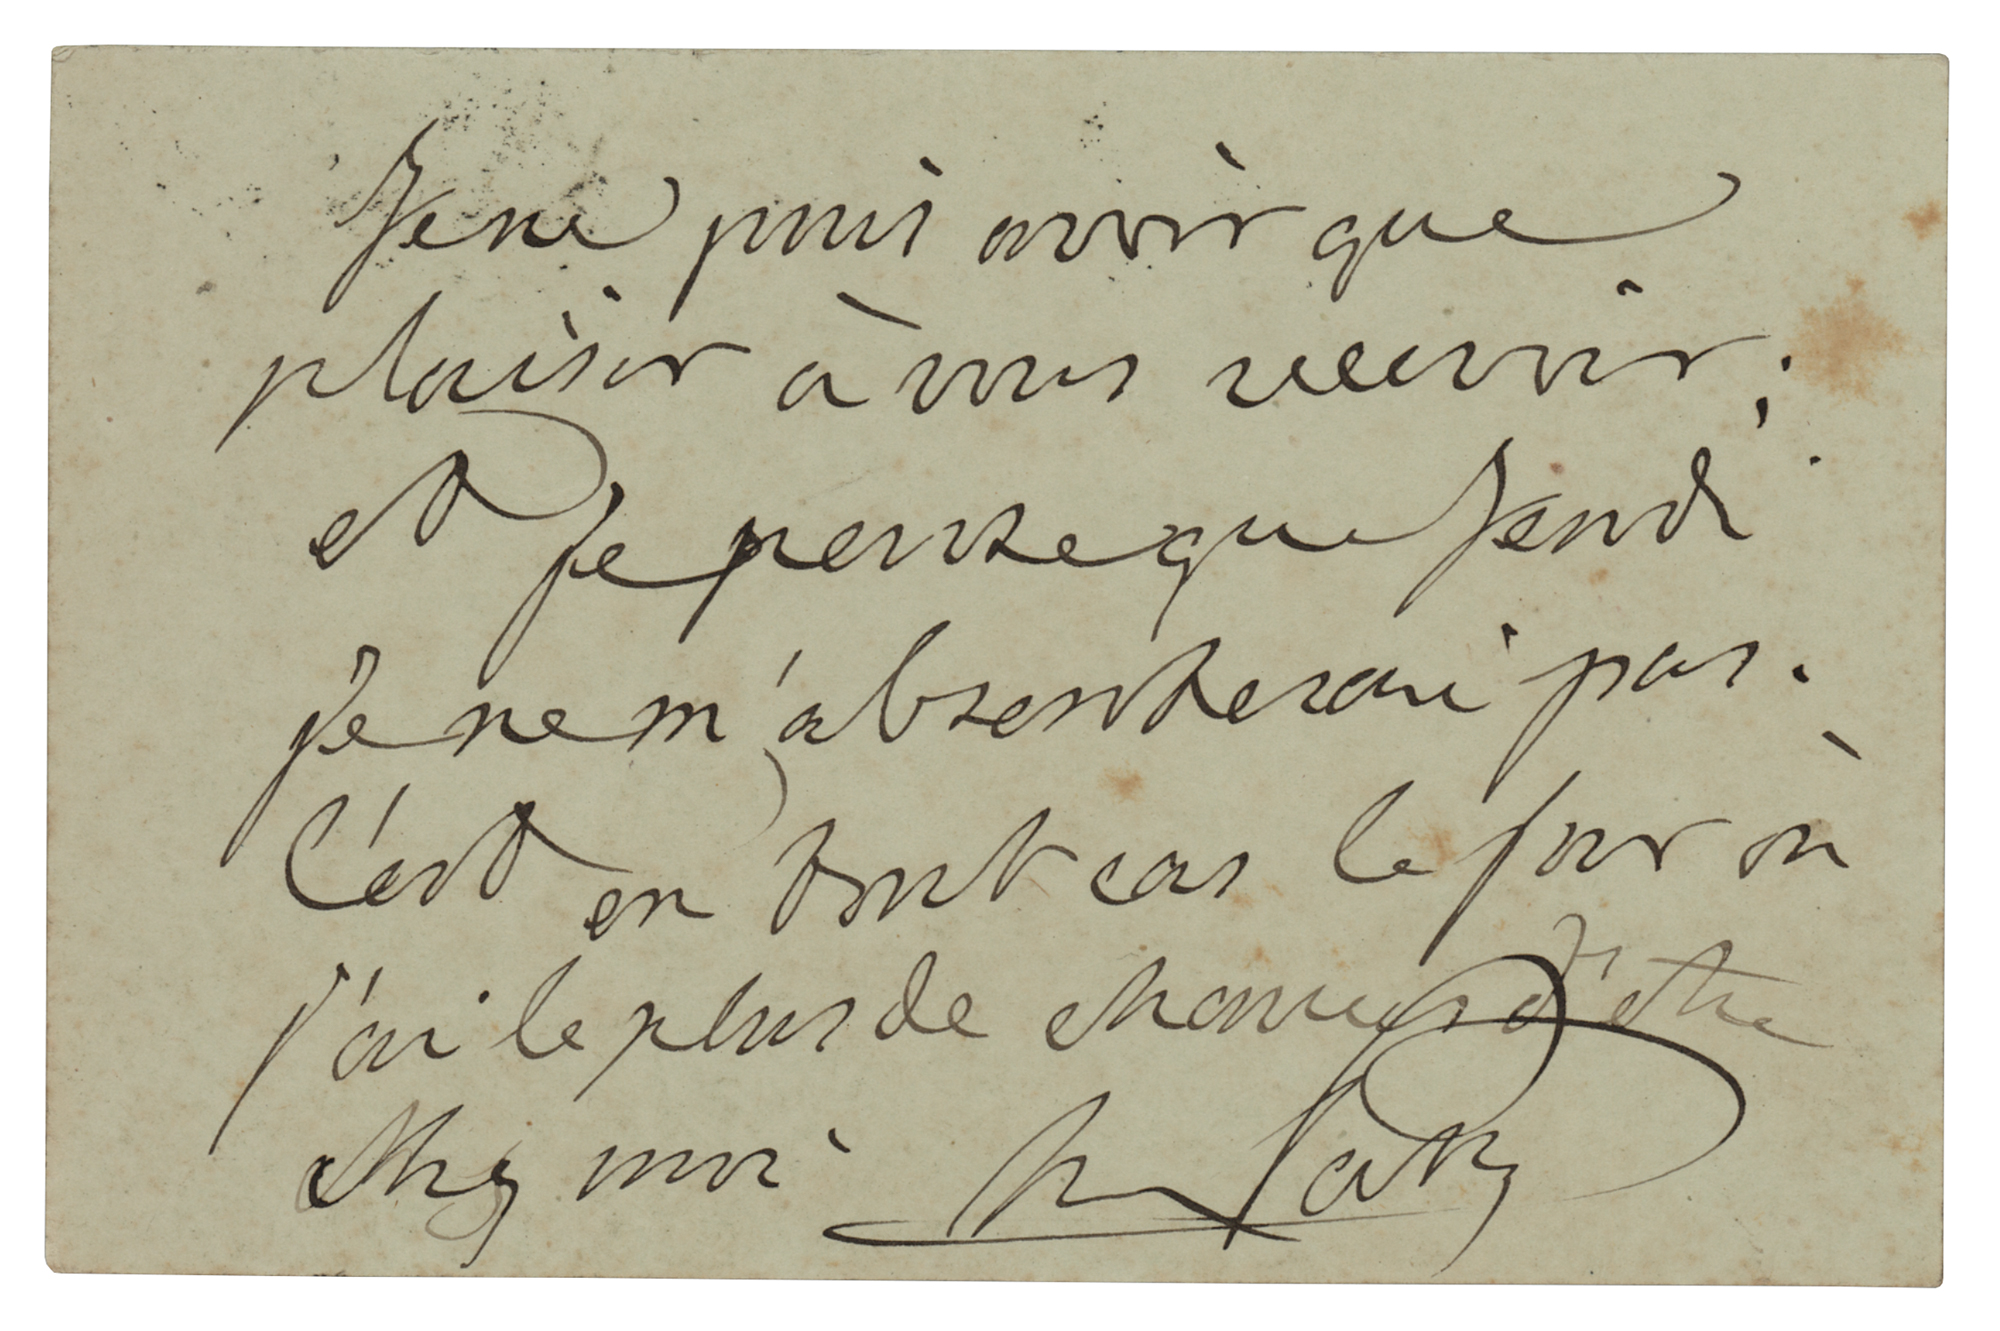 Je ne puis avoir que
plaisir à vous recevoir ;
et je pense que Jeudi
je ne m'absenterai pas.
C'est en tout cas le jour où
j'ai le plus de chances d'être
chez moi